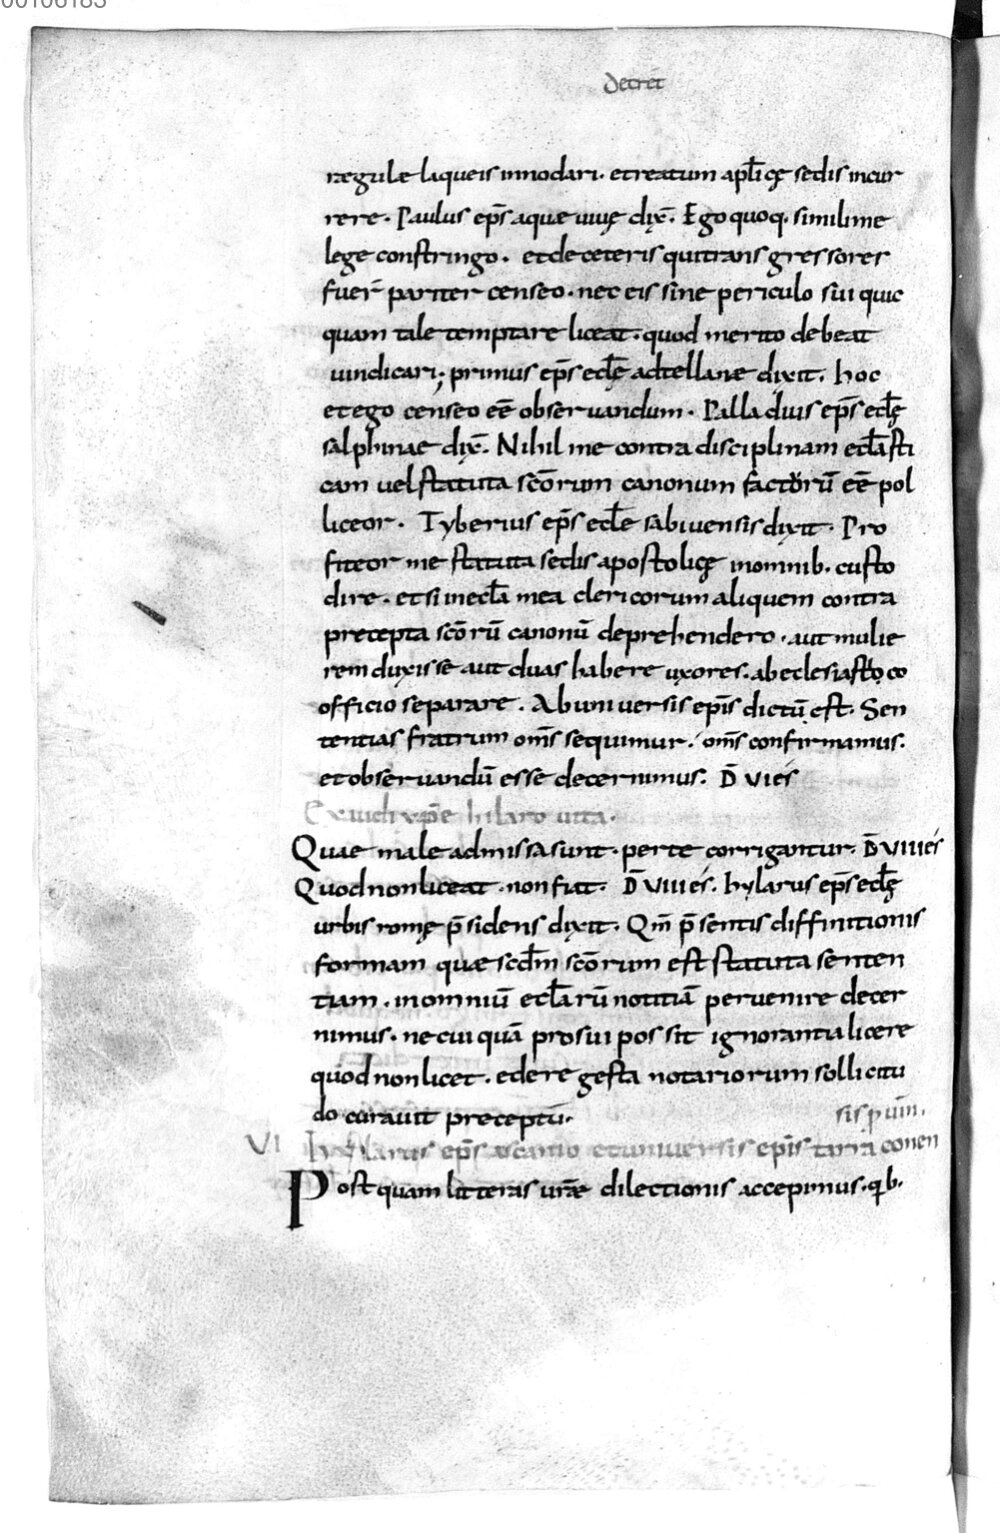 00106183
decret̄
regulæ laqueis innodari. et reatum apl̄icę sedis incur
rere. Paulus ep̄s aquæ uiuę dix̄. Ego quoq. simili me
lege constringo. et de ceteris qui transgressores
fuer̄ pariter censeo. nec eis sine periculo sui quic
quam tale temptare liceat. quod merito debeat
uindicari; primus ep̄s eclę adtellanæ dixit. hoc
et ego censeo eē obseruandum. Palladius ep̄s ecl̄ę
salphinae dix̄. Nihil me contra disciplinam ecl̄asti
cam uel statuta sc̄orum canonum facturū eē pol
liceor. Tyberius ep̄s ecl̄e sabiuensis dixit. Pro
fiteor me statuta sedis apostolicę in omnib. custo
dire. et si in ecl̄a mea clericorum aliquem contra
precepta sc̄orū canonū deprehendero. aut mulie
rem duxisse aut duas habere uxores. ab eclesiastico
officio separare. Ab uniuersis ep̄is dictū est. Sen
tentias fratrum om̄s sequimur. om̄s confirmamus.
et obseruandū esse decernimus. D̄ vies
hilaro uita.
Quae male admissa sunt. per te corrigantur. D̄ viiies
Quod non liceat. non fiat. D̄ viiies. hylarus ep̄s ecl̄ę
urbis romę p̄sidens dixit. Qm̄ p̄sentis diffinitionis
formam quæ scdm̄ sc̄orum est statuta senten
tiam. in omniū ecl̄arū notitiā peruenire decer
nimus. ne cuiquā pro sui possit ignorantia licere
quod non licet. edere gesta notariorum sollicitu
do curauit preceptū. sispum̄.
VI hylarus ep̄s ascanio et uniuersis ep̄is tarraconen
Postquam litteras urǣ dilectionis accepimus. qb.